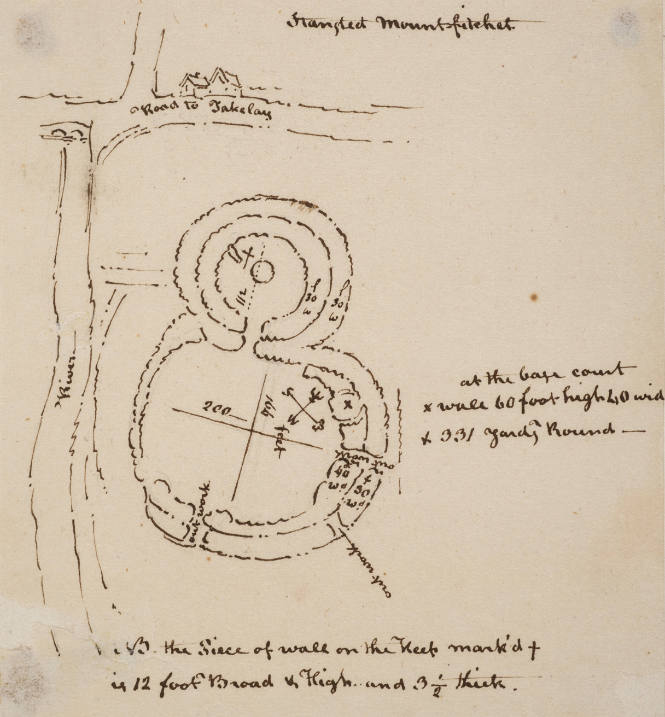 Stansted Mountfitchet
Road to Takelay
River
112
30 w
30 w
200
166 feet
at the base court
x wall 60 foot high 40 wid
& 331 yards Round —
40 wd
30 wd
out work
NB. the Piece of wall on the Keep mark'd +
is 12 foot Broad & High and 3 ½ thick.